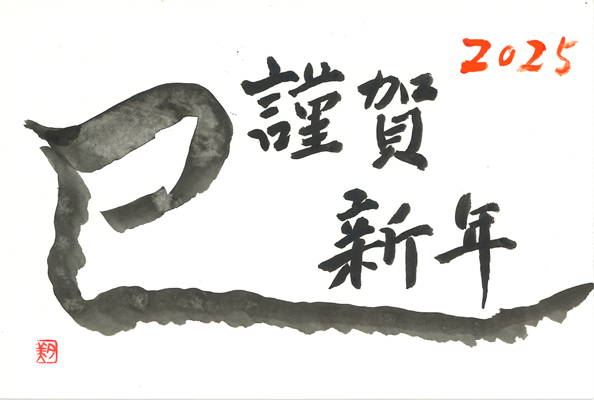 2025
謹賀
新年
巳